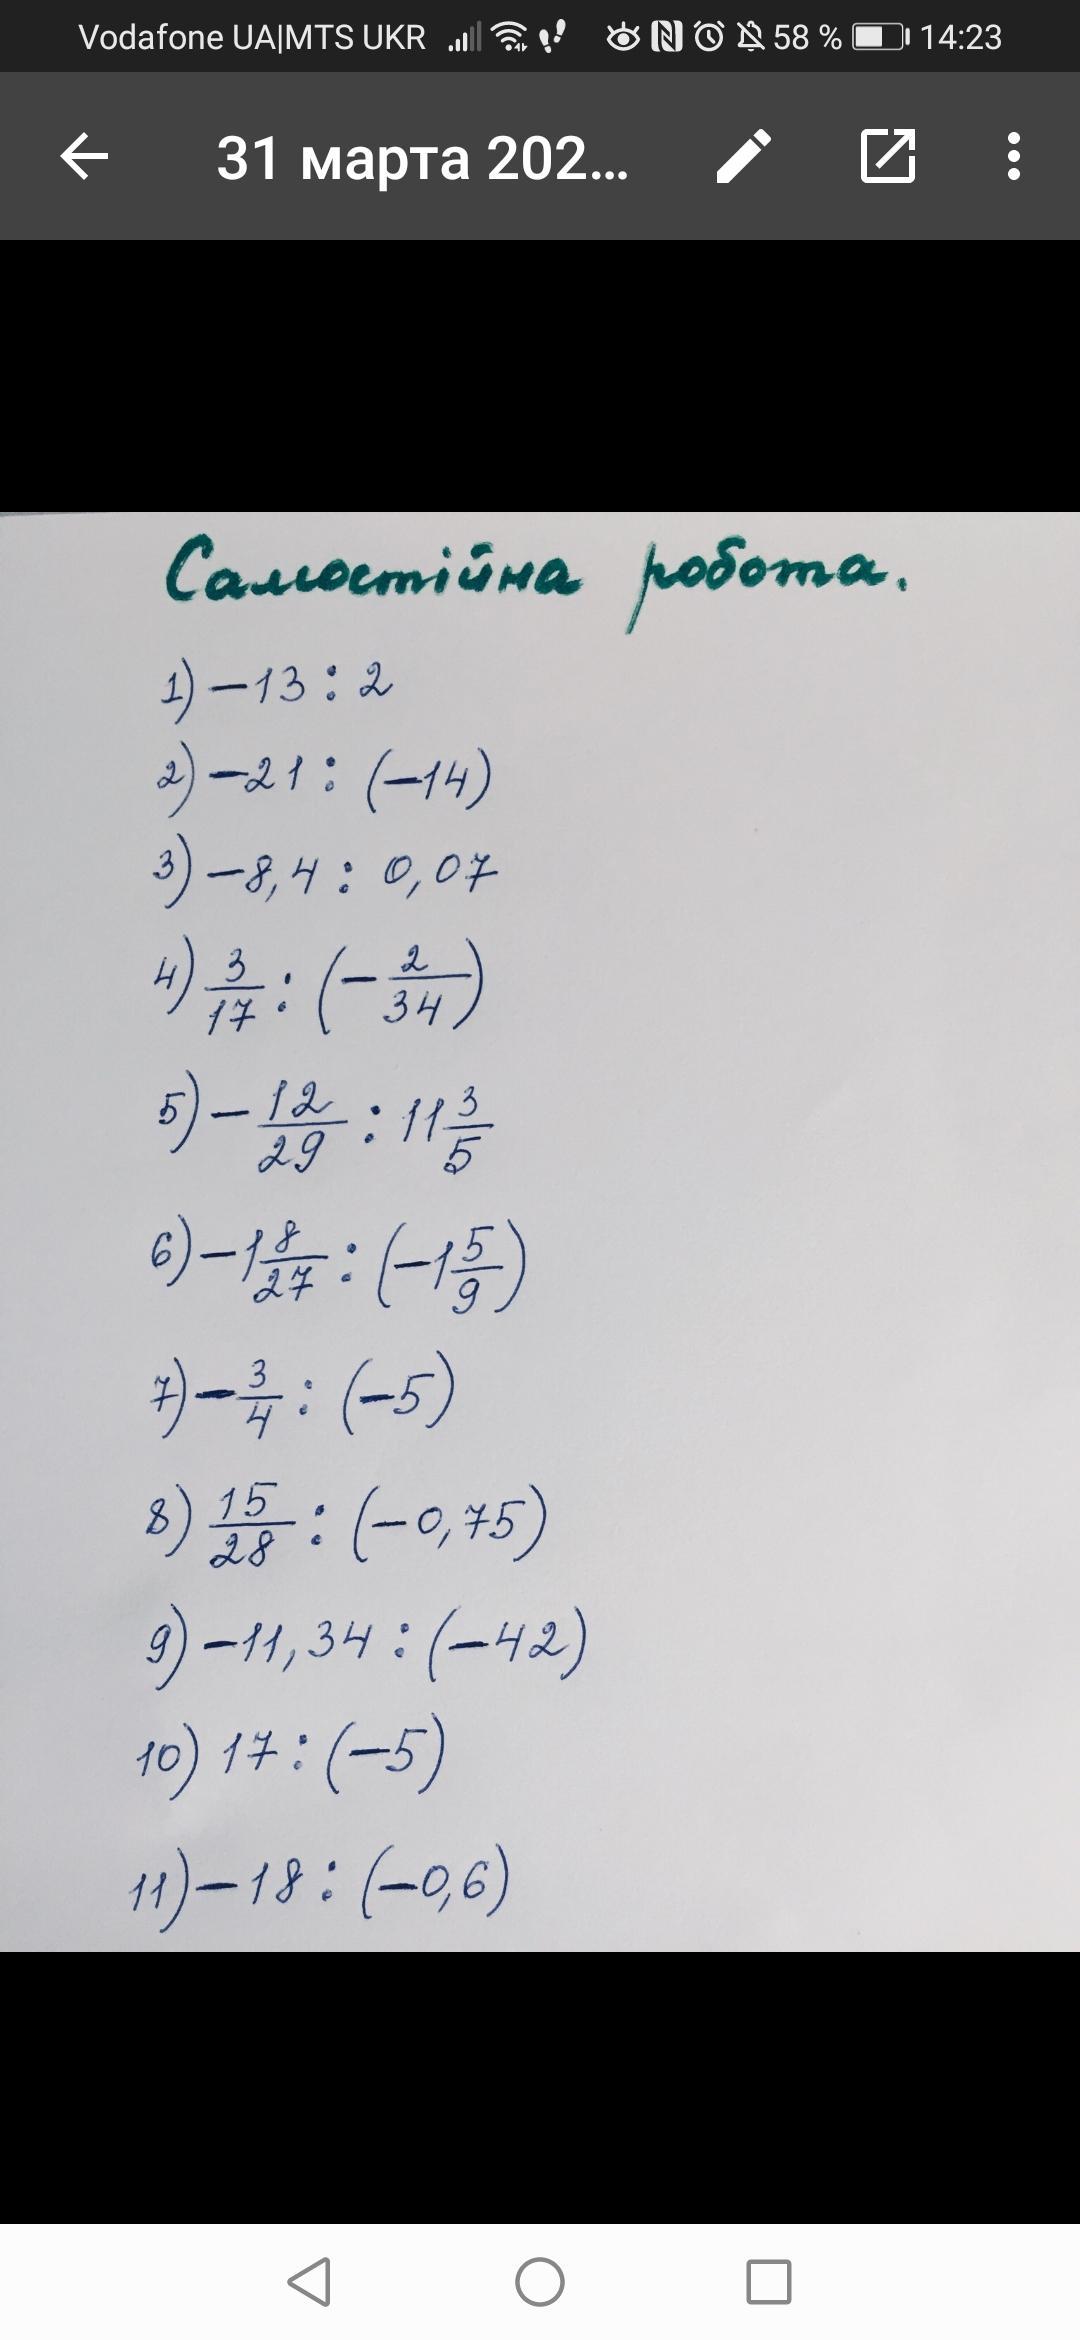 Vodafone UA|MTS UKR 58 % 14:23
31 марта 202...
Самостійна робота.
1) -13 : 2
2) -21 : (-14)
3) -8,4 : 0,07
4) 3/17 : (-2/34)
5) -12/29 : 11 3/5
6) -1 8/27 : (-1 5/9)
7) -3/4 : (-5)
8) 15/28 : (-0,75)
9) -11,34 : (-42)
10) 17 : (-5)
11) -18 : (-0,6)